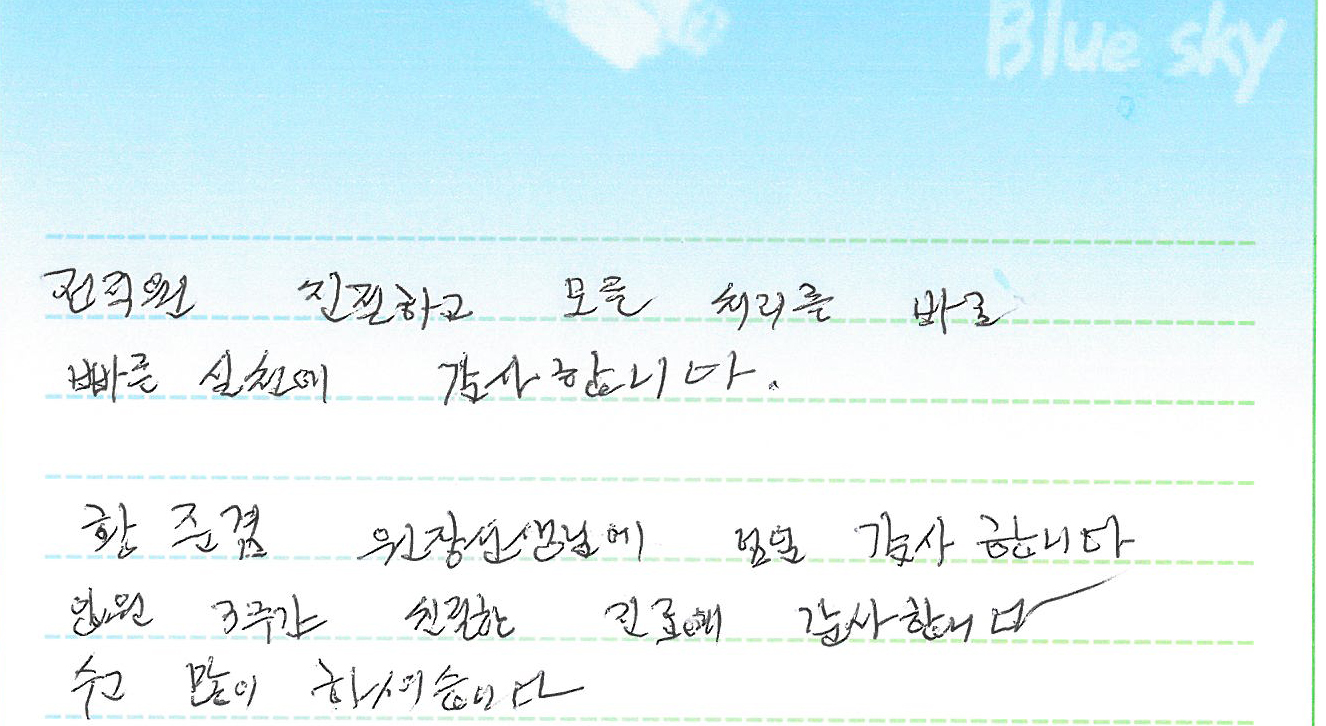 Blue sky
전직원 친절하고 모든 처리를 바로
빠른 실천에 감사합니다.
황 준경 원장선생님에 감사 합니다
입원 3주간 친절한 진료에 감사합니다
수고 많이 하셔습니다